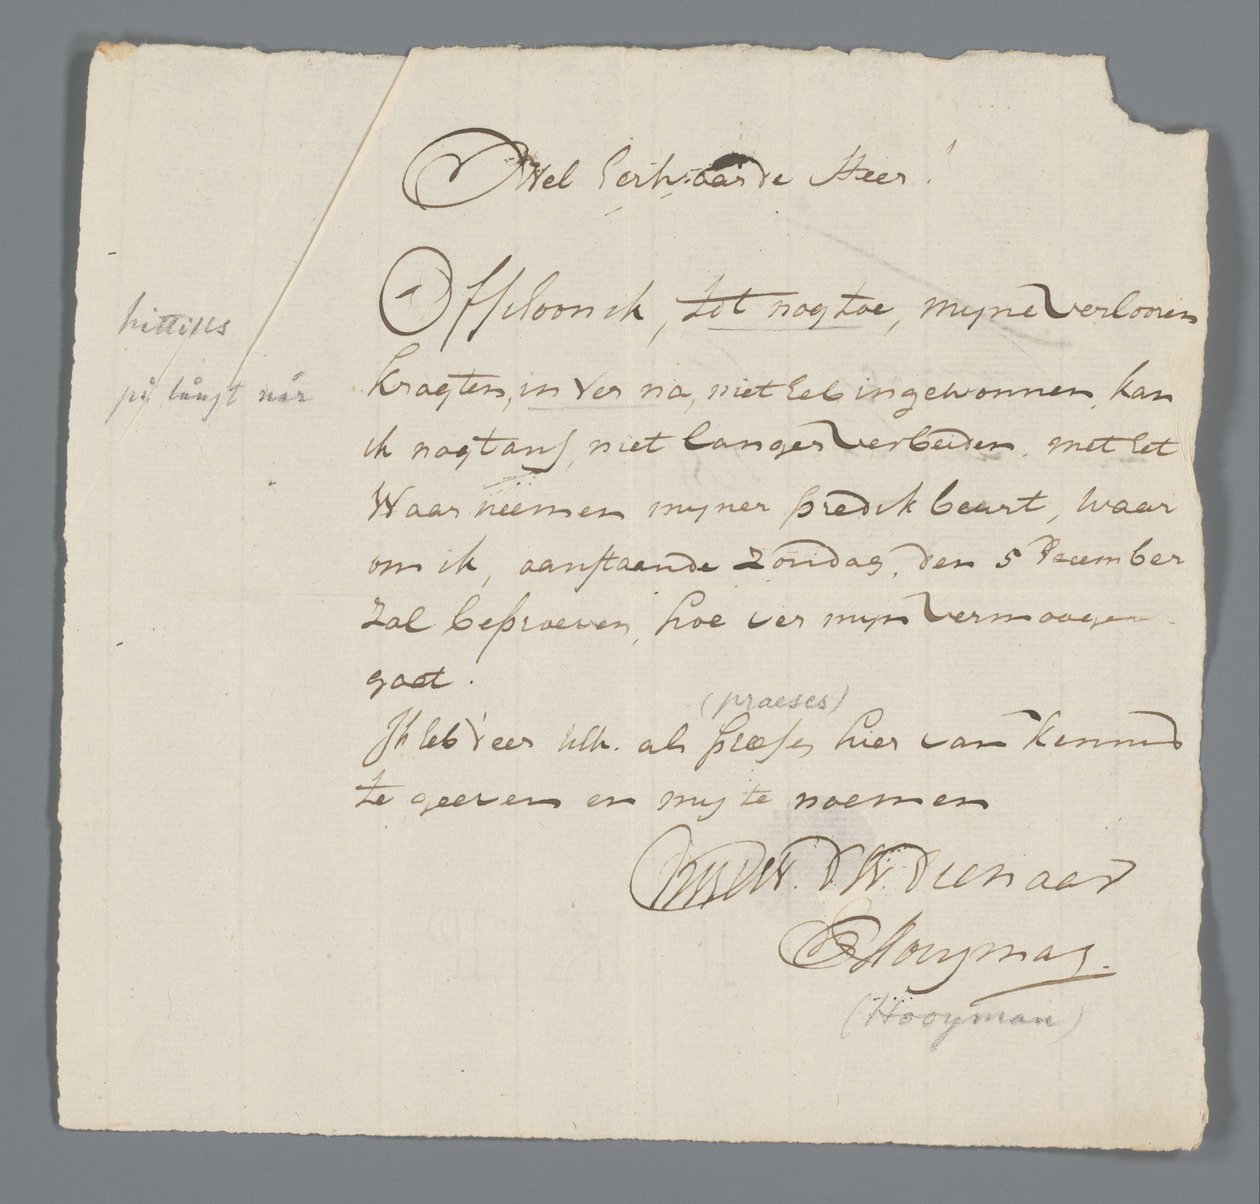 Wel Eerwaarde Heer!
Offchoon ik, tot nog toe, myne verlooren
hittills
kragten, in ver na, niet heb ingewonnen, kan
på långt när
ik nogtans, niet langer verbeiden, met het
Waarneemen myner predikbeurt, waar
om ik, aanstaende Zondag, den 5 December
Zal beproeven, hoe ver myn vermoogen
gaet.
(praeses)
Ik heb d'eer UE. als præses hier van kennis
te geeven en my te noemen
UW. D.W. Dienaar
Hooyman.
(Hooyman)